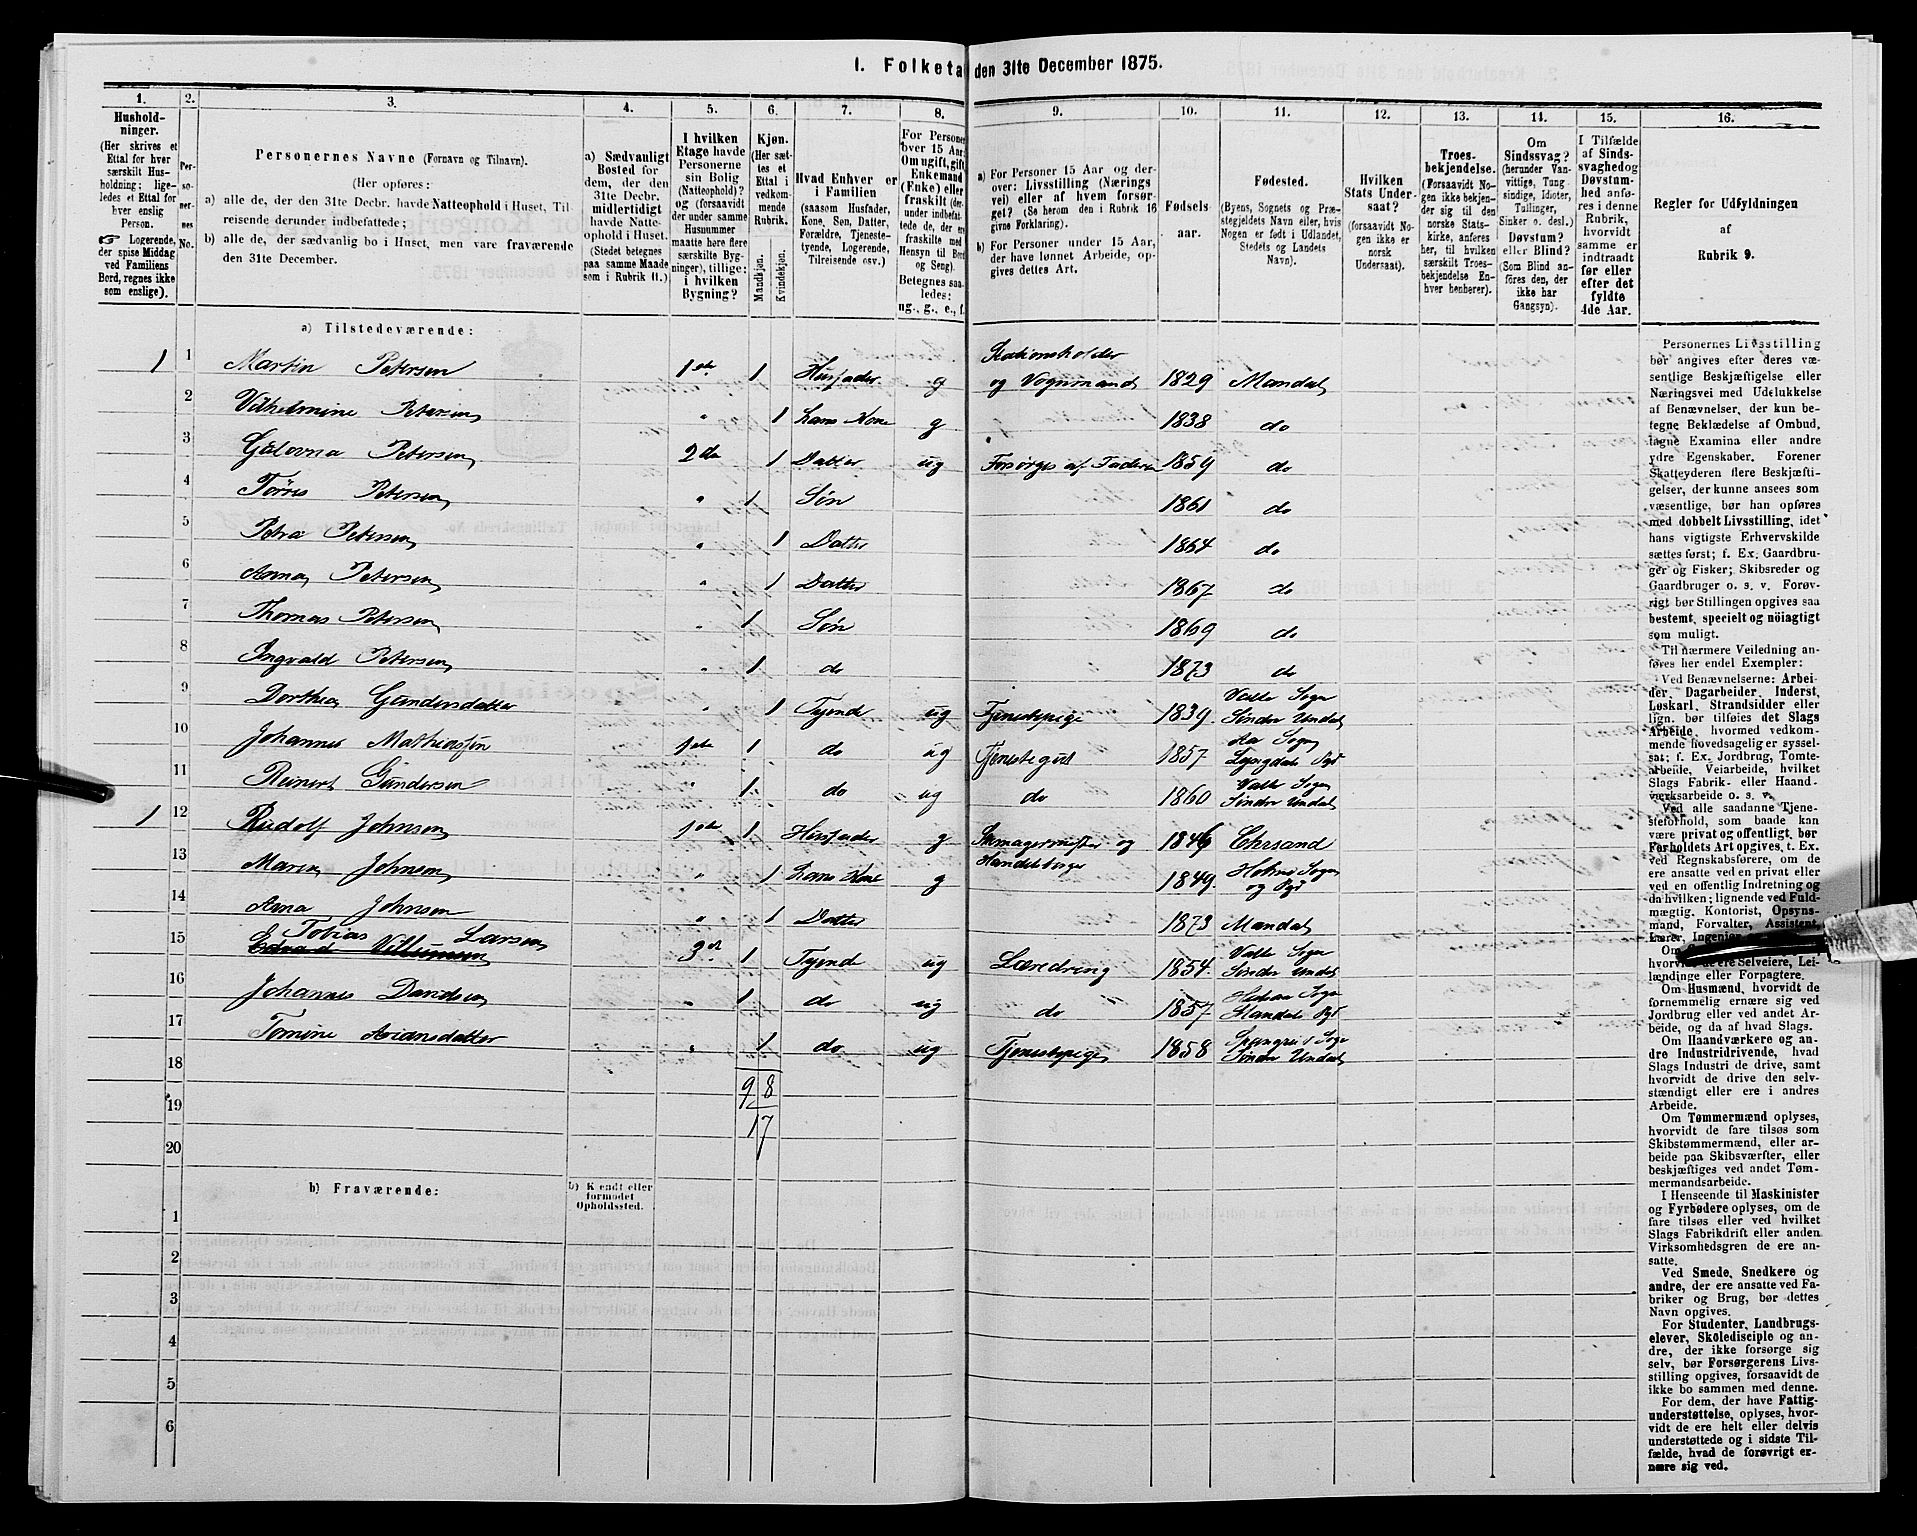 I. Folketa den 31te December 1875.
1.
Hushold-
ninger.
(Her skrives et
Ettal for hver
særskilt Hus-
holdning; lige-
ledes et Ettal for
hver enslig
Person.
☞ Logerende,
der spise Middag
ved Familiens
Bord, regnes ikke
som enslige).
2.
Per-
so-
ner-
nes
No.
3.
Personernes Navne (Fornavn og Tilnavn).
(Her opføres:
a) alle de, der den 31te Decbr. havde Natteophold i Huset, Til-
reisende derunder indbefattede;
b) alle de, der sædvanlig bo i Huset, men vare fraværende
den 31te December.
4.
a) Sædvanligt
Bosted for
dem, der den
31te Decbr.
midlertidigt
havde Natte-
ophold i Huset.
(Stedet betegnes
paa samme Maade
som i Rubrik 11.)
5.
I hvilken
Etage havde
Personerne
sin Bolig
(Natteophold)?
og (forsaavidt
der under samme
Husnummer
maatte høre flere
særskilte Byg-
ninger), tillige:
i hvilken
Bygning?
6.
Kjøn.
(Her sæt-
tes et
Ettal i
vedkom-
mende
Rubrik.
Mandkjøn.
Kvindekjøn.
7.
Hvad Enhver er
i Familien
(saasom Husfader,
Kone, Søn, Datter,
Forældre, Tjeneste-
tyende, Logerende,
Tilreisende osv.)
8.
For Personer
over 15 Aar:
Om ugift, gift,
Enkemand
(Enke) eller
fraskilt (der-
under indbefat-
tede de, der ere
fraskilte med
Hensyn til Bord
og Seng).
Betegnes saa-
ledes:
ug., g., e., f.
9.
a) For Personer 15 Aar og der-
over: Livsstilling (Nærings
vei) eller af hvem forsør-
get? (Se herom den i Rubrik 16
givne Forklaring).
b) For Personer under 15 Aar,
der have lønnet Arbeide, op-
gives dettes Art.
10.
Fødsels-
aar.
11.
Fødested.
(Byens, Sognets og Præ-
stegjeldets Navn eller, hvis
Nogen er født i Udlandet,
Stedets og Landets
Navn).
12.
Hvilken
Stats Under-
saat?
(forsaavidt No-
gen ikke er
norsk
Undersaat).
13.
Troes-
bekjendelse.
(Forsaavidt No-
gen ikke bekjen-
der sig til den
norske Stats-
kirke, anføres
her, til hvilken
særskilt Troes-
bekjendelse En-
hver henhører).
14.
Om
Sindssvag?
(herunder Van-
vittige, Tung
sindige, Idioter,
Tullinger,
Sinker o. desl.)
Døvstum?
eller Blind?
(Som Blind an-
føres den, der
ikke har
Gangsyn).
15.
I Tilfælde
af Sinds-
svaghed og
Døvstum-
hed anfø-
res i denne
Rubrik,
hvorvidt
samme er
indtraadt
før eller
efter det
fyldte
4de Aar.
16.
Regler for Udfyldningen
af
Rubrik 9.
a) Tilstedeværende:
1 1 Martin Petersen 1ste 1 Husfader g Stationsholder
og Vognmand 1829 Mandal
2 Vilhelmine Petersen " 1 hans Kone g 1838 do
3 Gulovna Petersen 2den 1 Datter ug Forsørges af Faderen 1859 do
4 Tørres Petersen " 1 Søn 1861 do
5 Petra Petersen " 1 Datter 1864 do
6 Anna Petersen " 1 Datter 1867 do
7 Thomas Petersen " 1 Søn 1869 do
8 Ingvald Petersen " 1 do 1873 do
9 Dorthea Gundersdatter " 1 Tyende ug Tjenestepige 1839 Valle Sogn
Søndre Undal
10 Johannes Mathiassen 1ste 1 do ug Tjenestegut 1857 Aa Sogn
Lyngdal Pgt
11 Reinert Gundersen " 1 do ug do 1860 Valle Sogn
Søndre Undal
1 12 Rudolf Johnsen 1ste 1 Husfader g Skomagermester og
Handelsborger 1846 Chrsand
13 Maren Johnsen " 1 hans Kone g 1849 Holme Sogn
og Pgt
14 Anna Johnsen " 1 Datter 1873 Mandal
15 Tobias Larsen 3de 1 Tyende ug Læredreng 1854 Valle Sogn
Søndre Undal
16 Johannes Davidsen " 1 do ug do 1857 Sogn
Mandal Pgt
17 Tomine Ariansdatter " 1 do ug Tjenestepige 1858 Spangreid Sogn
Søndre Undal
18
9 8
19
17
20
b) Fraværende:
b) Kendt eller
formodet
Opholdssted.
1
2
3
4
5
6
Personernes Livsstilling
bør angives efter deres væ-
sentlige Beskjæftigelse eller
Næringsvei med Udelukkelse
af Benævnelser, der kun be-
tegne Beklædelse af Ombud,
tagne Examina eller andre
ydre Egenskaber. Forener
Skatteyderen flere Beskjæfti-
gelser, der kunne ansees som
væsentlige, bør han opføres
med dobbelt Livsstilling, idet
hans vigtigste Erhvervskilde
sættes først; f. Ex. Gaardbru-
ger og Fisker; Skibsreder og
Gaardbruger o. s. v. Forøv-
rigt bør Stillingen opgives saa
bestemt, specielt og nöiagtigt
som muligt.
Til nærmere Veiledning an-
føres her endel Exempler:
Ved Benævnelserne: Arbei-
der, Dagarbeider, Inderst,
Løskarl, Strandsidder eller
lign. bør tilføies det Slags
Arbeide, hvormed vedkom-
mende hovedsagelig er syssel-
sat; f. Ex. Jordbrug, Tomte-
arbeide, Veiarbeide, hvilket
Slags Fabrik- eller Haand-
værksarbeide o. s. v.
Ved alle saadanne Tjene-
steforhold, som baade kan
være privat og offentligt, bør
Forholdets Art opgives, t. Ex.
ved Regnskabsførere, om de
ere ansatte ved en privat eller
ved en offentlig Indretning og
da hvilken; lignende ved Fuld-
mægtig. Kontorist, Opsyns-
mand, Forvalter, Assistent,
Lærer, Ingeniør
Om
hvorvidt de ere Selveiere, Lei-
lændinge eller Forpagtere.
Om Husmænd, hvorvidt de
fornemmelig ernære sig ved
Jordbrug eller ved andet Ar-
beide, og da af hvad Slags.
Om Haandværkere og an-
dre Industridrivende, hvad
Slags Industri de drive, samt
hvorvidt de drive den selv-
stændigt eller ere i andres
Arbeide.
Om Tømmermænd oplyses,
hvorvidt de fare tilsøs som
Skibstømmermænd, eller ar-
beide paa Skibsværfter, eller
beskjæftiges ved andet Tøm-
mermandsarbeide.
I Henseende til Maskinister
og Fyrbødere oplyses, om de
fare tilsøs eller ved hvilket
Slags Fabrikdrift eller anden
Virksomhedsgren de ere an-
satte.
Ved Smede, Snedkere og
andre, der ere ansatte ved Fa-
briker og Brug, bør dettes
Navn opgives.
For Studenter, Landbrugs-
elever, Skoledisciple og an-
dre, der ikke forsørge sig
selv, bør Forsørgerens Livs-
stilling opgives, forsaavidt de
ikke bo sammen med denne.
For dem, der have Fattig-
understøttelse, oplyses, hvor-
vidt de ere helt eller delvis
understøttede og i sidste Til-
fælde, hvad de forøvrigt er-
nære sig ved.